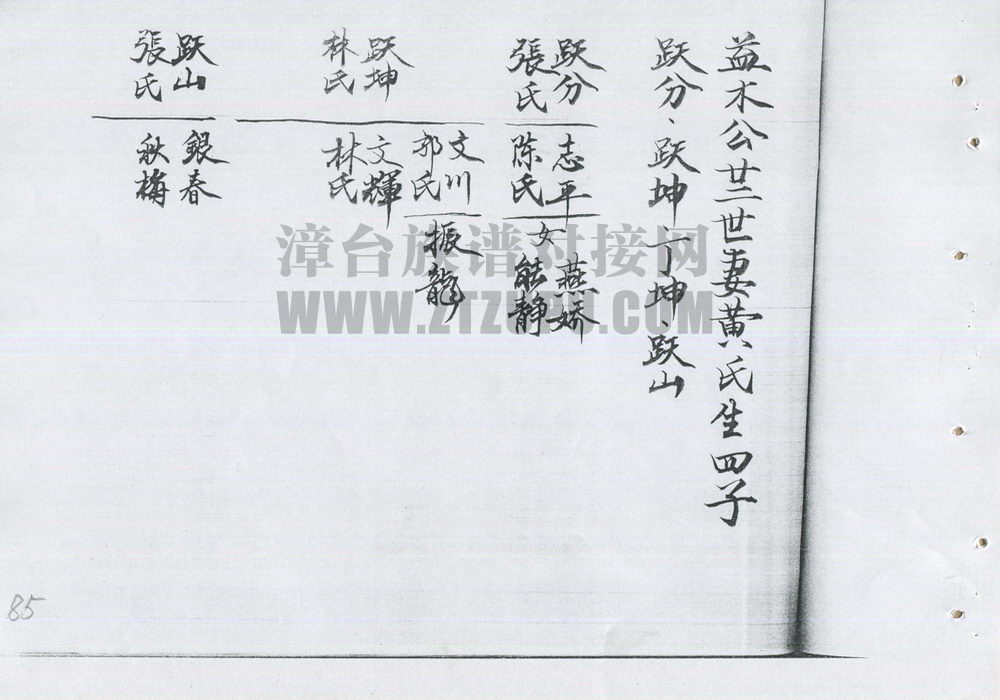 益木公廿三世妻黄氏生四子
跃分、跃坤、丁坤、跃山
跃分
張氏
志平
陈氏
燕娇
女 能靜
跃坤
林氏
文川
郭氏
振龍
文輝
林氏
跃山
張氏
銀春
秋梅
漳台族谱对接网
WWW.ZTZUPU.COM
85